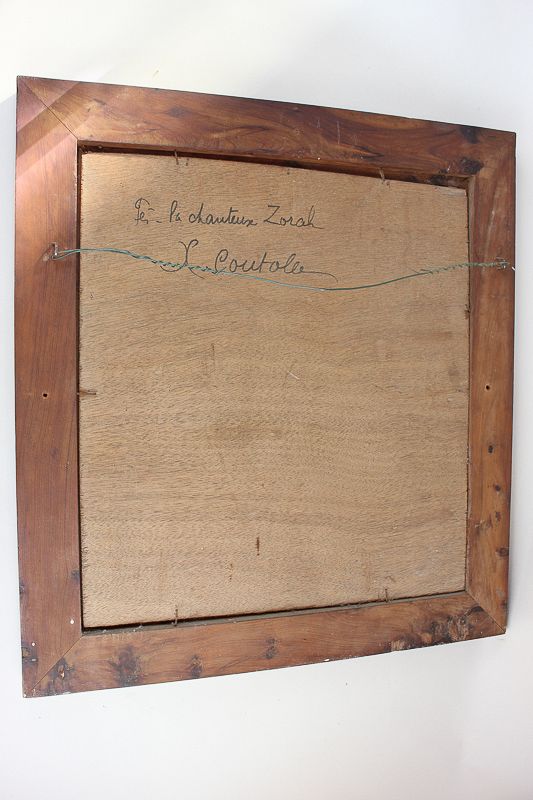 Fès - la chanteux Zorah
L Coutole